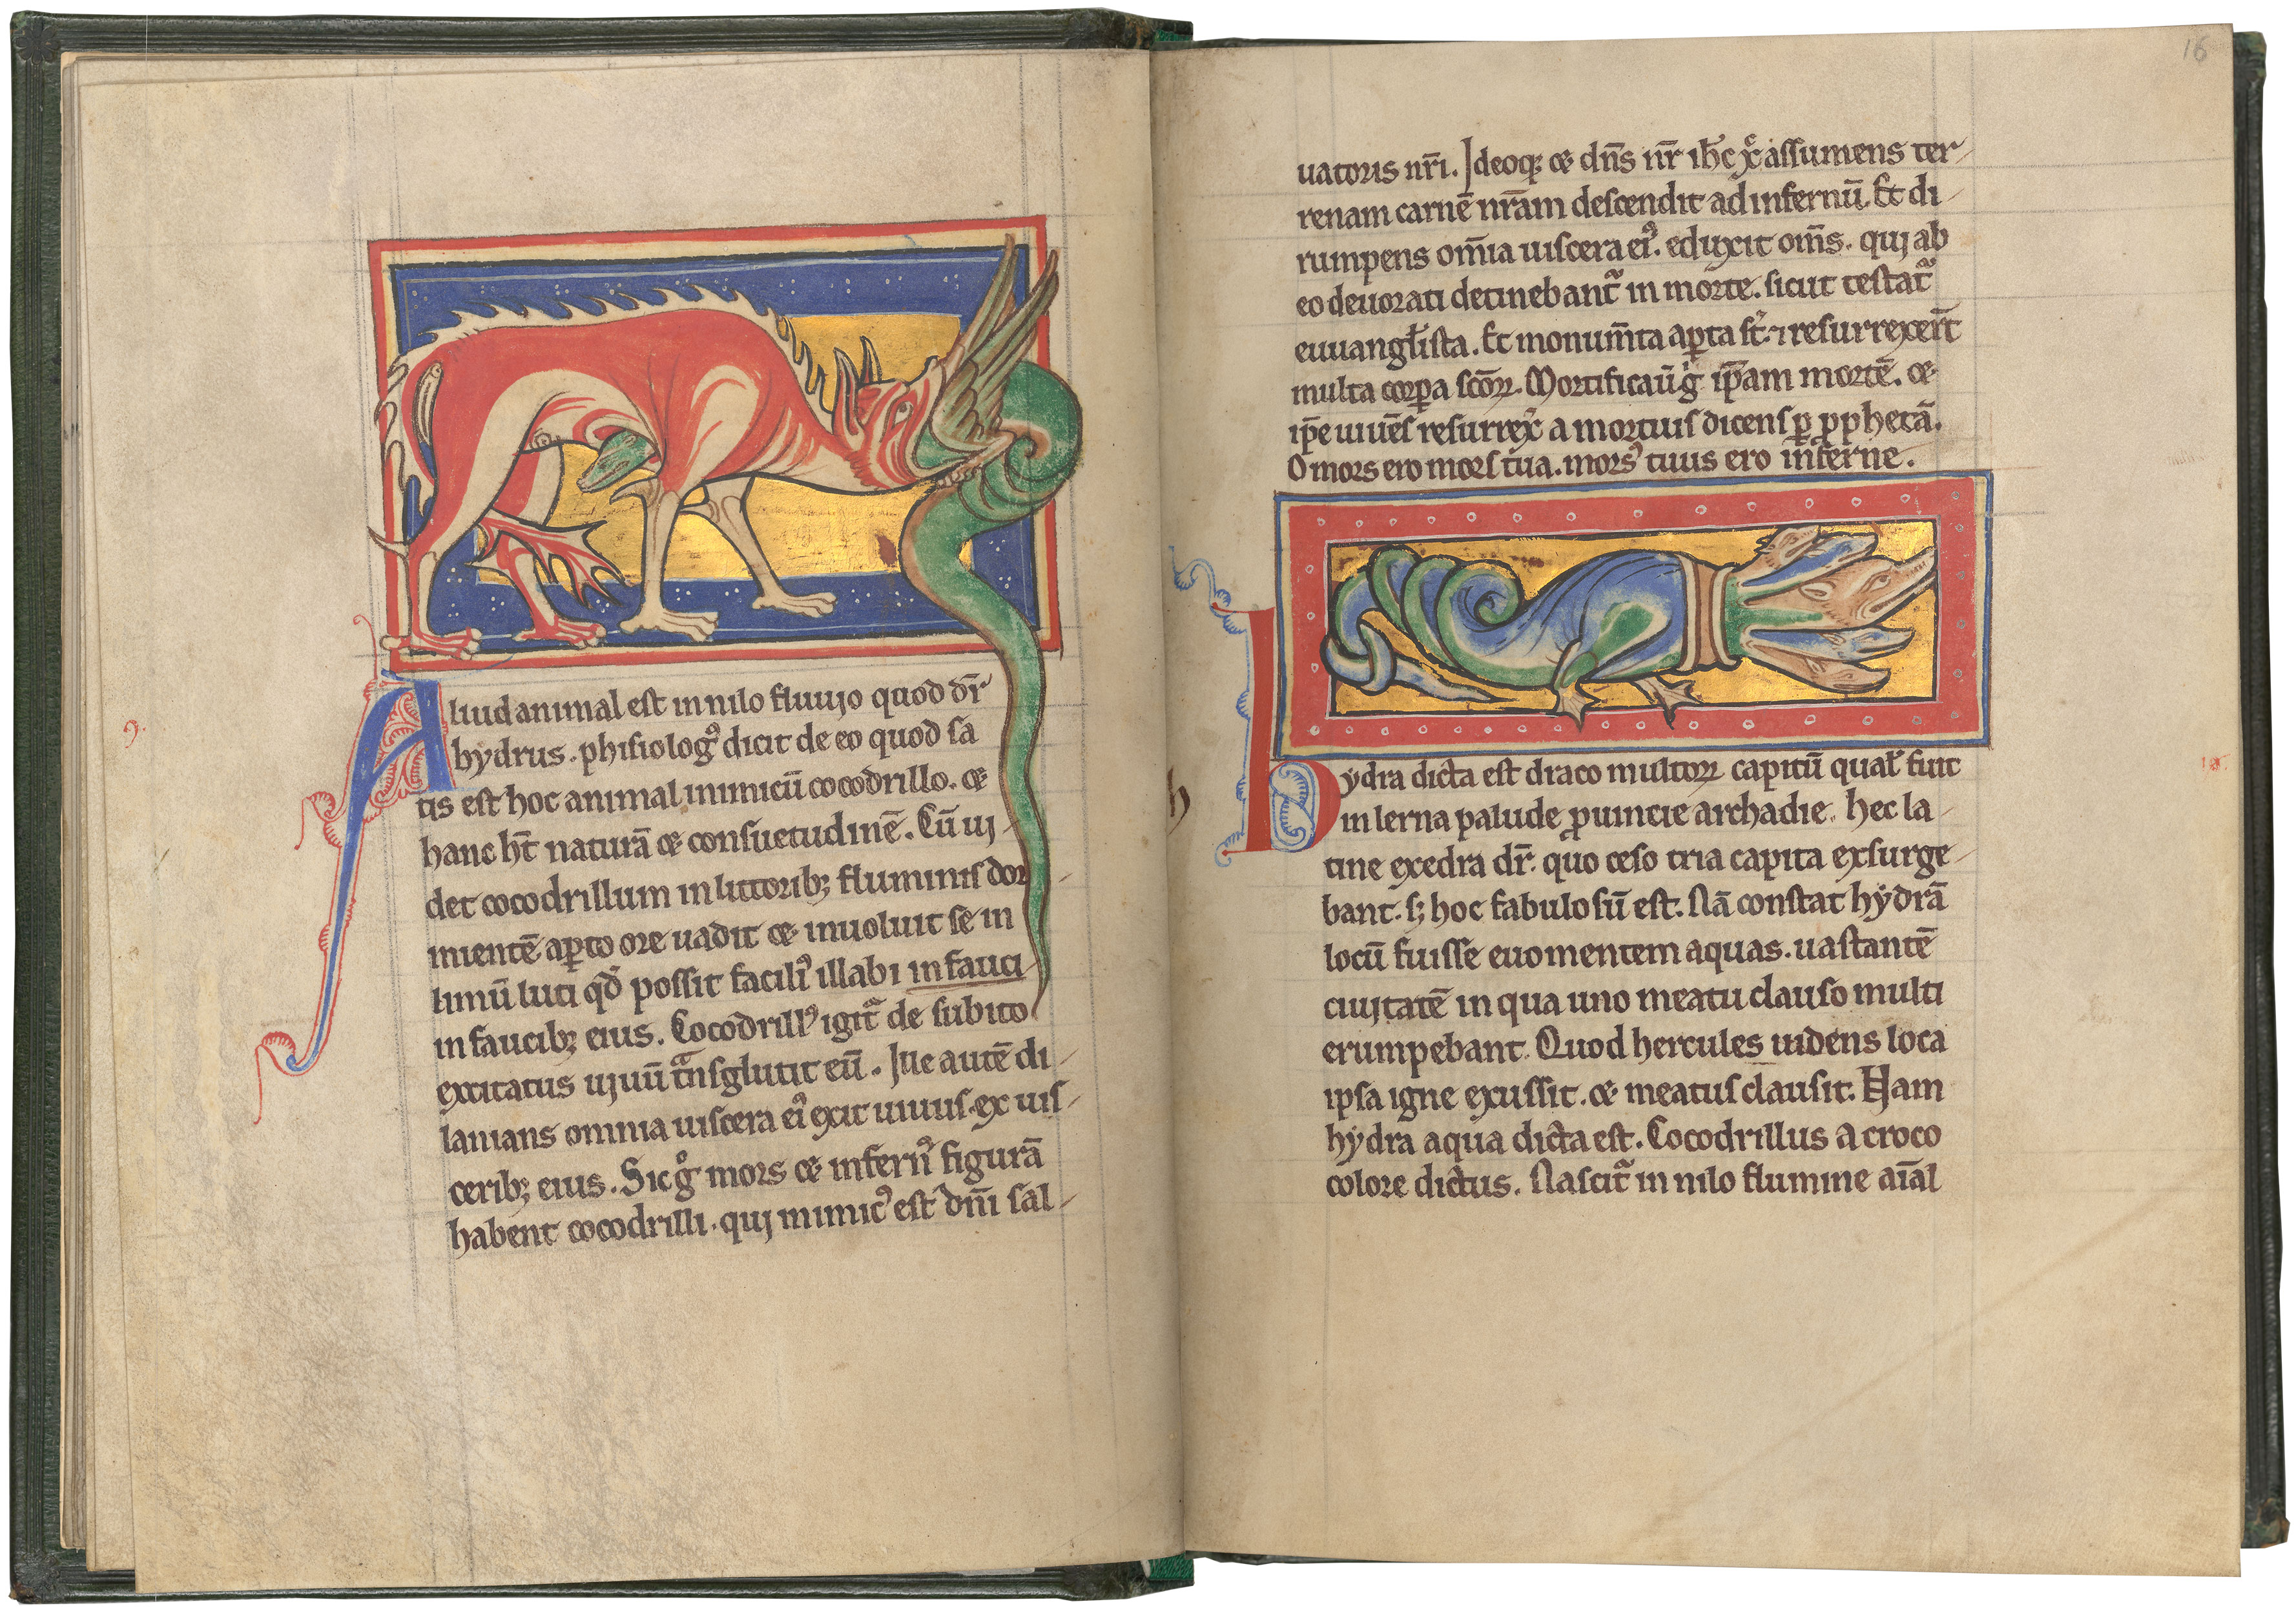 Aliud animal est in nilo fluuio quod dr̄
hydrus. phisiologꝰ dicit de eo quod sa
tis est hoc animal inimicū cocodrillo. &
hanc ht̄ naturā & consuetudinē. Cū ui
det cocodrillum in littoribꝫ fluminis dor
mientē aꝑto ore uadit & inuoluit se in
limū luti qđ possit faciliꝰ illabi in fauci
in faucibꝫ eius. Cocodrillꝰ igit᷑ de subito
excitatus uiuū tͣnsglutit eū. Ille autē di
lanians omnia uiscera eiꝰ exit uiuus ex uis
ceribꝫ eius. Sic gͦ mors & infernꝰ figurā
habent cocodrilli. qui inimicꝰ est dn̄i sal
16
uatoris nr̄i. Ideoqꝫ & dn̄s nr̄ ih̄c xp̄c assumens ter
renam carnē nr̄am descendit ad infernū. Et di
rumpens om̄ia uiscera eiꝰ. eduxit om̄s. qui ab
eo deuorati detinebant᷑ in morte. sicut testat᷑
euuanḡlista. Et monum̄ta aꝑta st̄. ⁊ resurrexer̄t
multa corꝑa sc̄oꝝ. Mortificauͥ gͦ ip̄am mortē. &
ip̄e uiuēs resurrexͭ a mortuis dicens ꝑ ꝓphetā.
O mors ero mors tua. morsꝰ tuus ero inferne.
h
Hydra dicta est draco multoꝝ capitū qual̄ fuit
in lerna palude ꝓuincie archadie. hec la
tine excedra dr̄. qͦ ceso tria capita exsurge
bant. sꝫ hoc fabulosū est. Nā constat hydrā
locū fuisse euomentem aquas. uastantē
ciuitatē in qua uno meatu clauso multi
erumpebant. Quod hercules uidens loca
ipsa igne exussit. & meatus clausit. Nam
hydra aqua dicta est. Cocodrillus a croco
colore dictus. Nascit᷑ in nilo flumine aīal